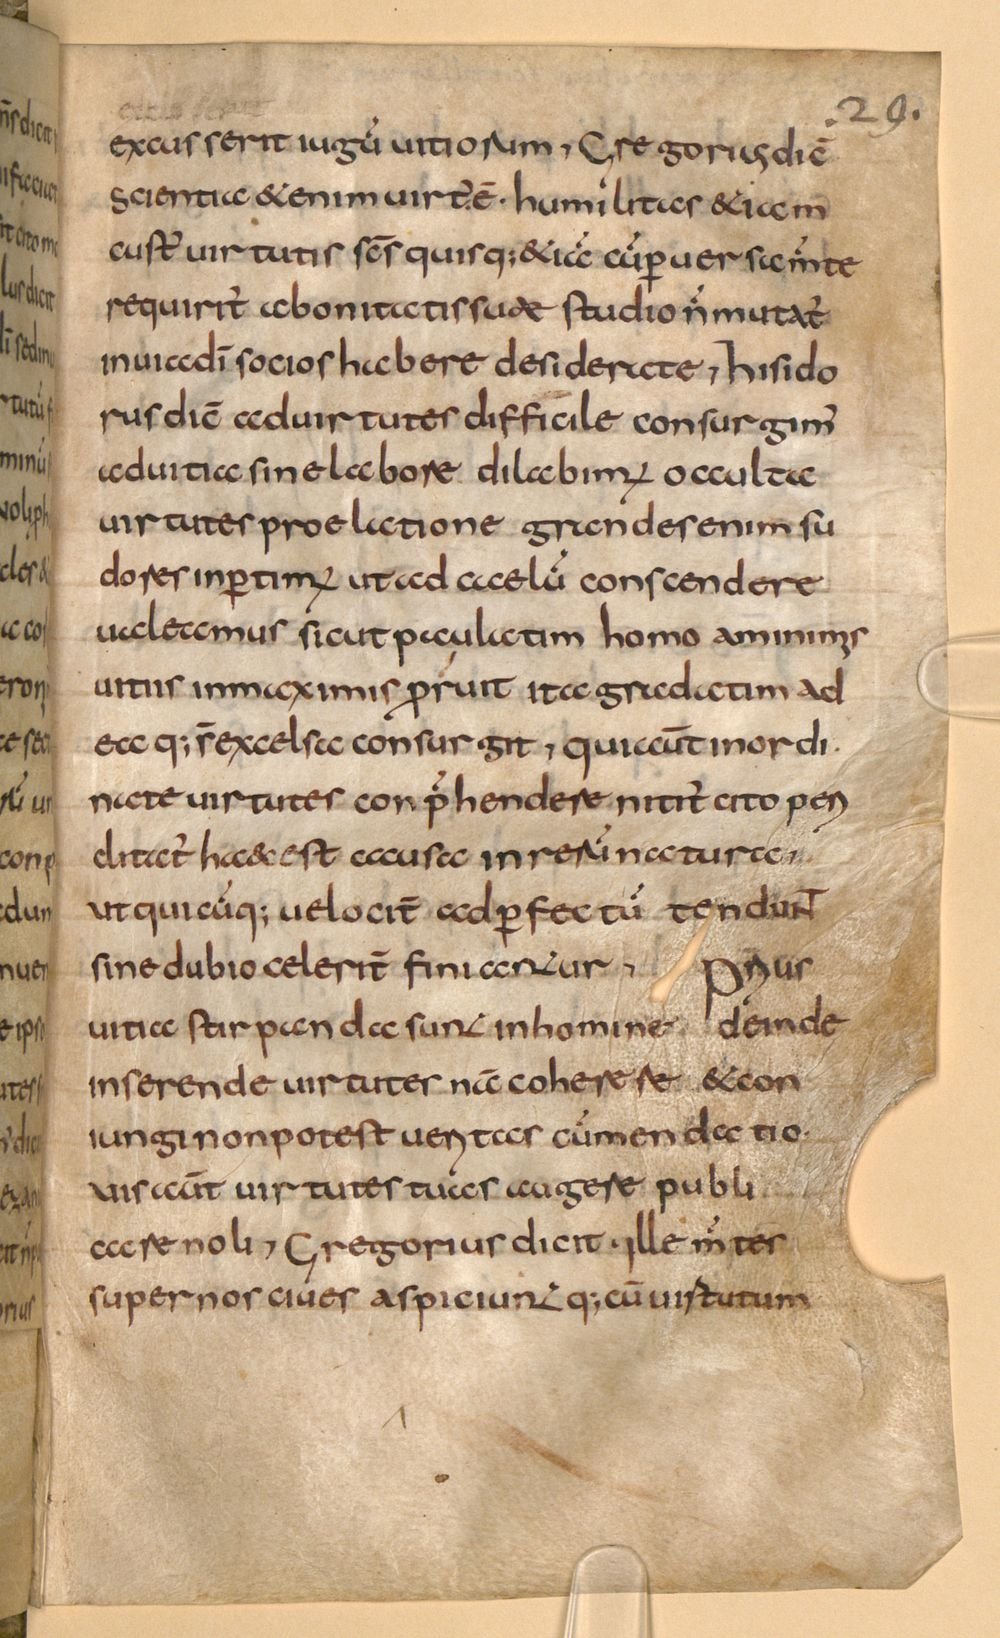 .29.
excusserit iugū uitiosum, Gregorius dic̄
scientiae &enim uirt̄ ē· humilitas &iam
cust̄ uirtutis sc̄s quisq; &iā cū peruersa m̄te
requirit̄ abonitatis suae studio n̄ mutat̄
inuia dī socios habere desiderate, hisido
rus dic̄ ad uirtutes difficile consurgim̄
ad uitia sine labore dilabimur occulta
uirtutes pro elatione grandes enim su
dores inpertimur ut ad caelū conscendere
ualeamus sicut paculatim homo aminimis
uitiis inmaximis proruit ita gradatim ad
ea q; s̄ excelsa consurgit, qui aūt inordi
nate uirtutes conprehendere nitit̄ cito peri
clitat̄ haec est causa in rerū natura,
ut quicūq; uelocit̄ ad perfectū tendunt
sine dubio celerit̄ finiantur, Prius
uitia stirpanda sunt in homine deinde
inserende uirtutes nā coherere &con
iungi non potest ueritas cū mendatio
uis aūt uirtutes tuas augere publi
care noli, Gregorius dicit· ille m̄tes
supernos ciues aspiciunt q; cū uirtutum